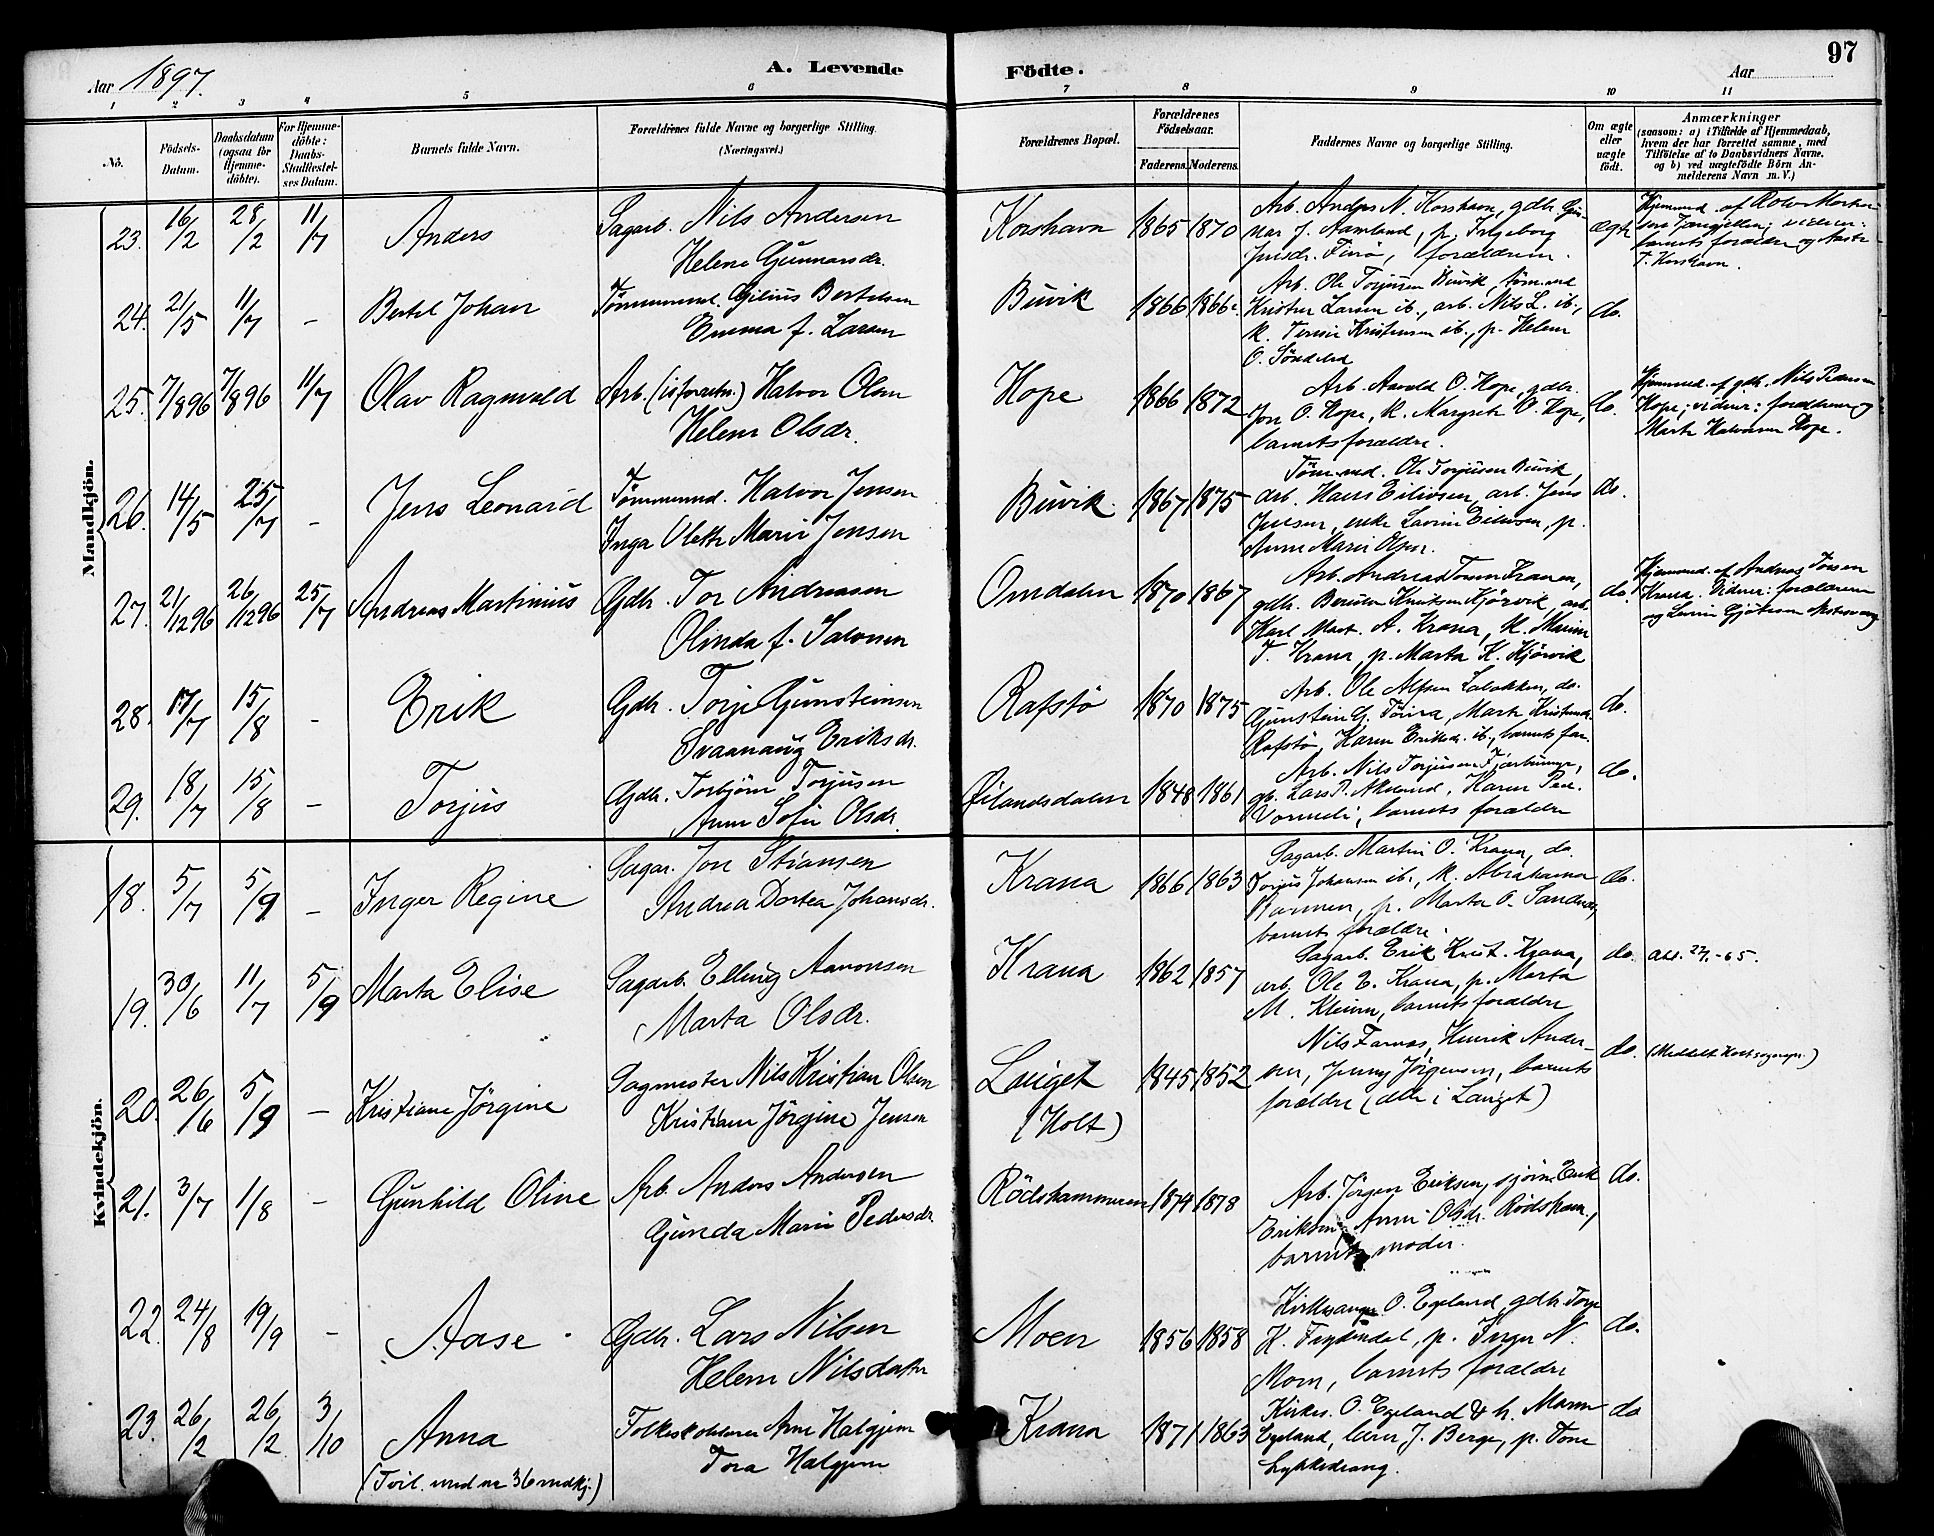 Aar 1897.
A. Levende Födte.
Aar
97
1 2 3 4 5 6 7 8 9 10 11
No.
Födsels-Datum.
Daabsdatum (ogsaa för Hjemme-döbte).
For Hjemme-döbte: Daabs-Stadfestel-ses Datum.
Barnets fulde Navn.
Forældrenes fulde Navne og borgerlige Stilling. (Næringsvei.)
Forældrenes Bopæl.
Forældrenes Födselsaar.
Faderens. Moderens.
Faddernes Navne og borgerlige Stilling.
Om ægte eller uægte födt.
Anmærkninger
(saasom: a) i Tilfælde af Hjemmedaab,
hvem der har forrettet samme, med
Tilföielse af to Daabsvidners Navne,
og b) ved uægtefödte Börn An-
melderens Navn m. V.)
Mandkjön.
23. 16/2 28/2 11/7 Anders
Sagarb. Nils Andersen
Helene Gunnarsdr.
Korshavn 1865 1870
Arb. Anders N. Korshavn, gdbr. Gun-
nar J. Aamland, p. Ingeborg
Jensdr. Finsö, forældrene.
ægte
24. 21/5 11/7 - Bertel Johan
Tömmermd. Gilius Bertelsen
Emma f. Larsen
Buvik 1866 1866
Arb. Ole Torjusen Buvik, töm.md
Krister Larsen ib., arb. Nils L. ib.,
k. Kristensen ib., p. Helene
O. Söndeled
do.
25. 7/8 96 7/8 96 11/7 Olav Ragnvald
Arb. Halvor Olsen
Helene Olsdr.
Hope 1866 1872
Arb. Aavald O. Hope, gdbr.
Jon O. Hope, k. Margrete O. Hope,
barnets forældre.
do.
Hjemmed. af gdb. Nils Pedersen
Hope; vidner: forældrene og
Marte Halvorsen Hope.
26. 14/5 25/7 - Jens Leonard
Tömmermd. Halvor Jensen
Inga Olette Marie Jensen
Buvik 1867 1875
Töm.md. Ole Torjusen Buvik,
arb. Hans Eilivsen, arb. Jens
Jensen, enke Lavine Eilivsen, p.
Anne Marie Olsen.
do.
27. 21/12 96 26/12 96 25/7 Andreas Martinius
Gdbr. Tor Andreasen
Olinda f. Salvesen
Omdalen 1870 1867
Arb. Andreas Torsen Krana,
gdbr. Knutsen Kjörvik, arb.
Karl Mart. A. Krana, k. Marine
T. Krana, p. Marta K. Kjörvik
do.
Hjemmed. af Andreas Torsen
Krana. Vidner: forældrene
28. 17/7 15/8 - Erik
Gdbr. Torje Gunsteinsen
Svaanaug Eriksdr.
Rafstö 1870 1875
Arb. Ole Alfsen, do.
Gunstein G. Marte Kristensd.
Rafstö, Karen Eriksdr. ib., barnets far.
do.
29. 18/7 15/8 - Torjus
Gdbr. Torbjörn Torjusen
Anne Sofie Olsdr.
Öilandsdalen 1848 1861
Arb. Nils Torjusen Fjærbunæs,
gb. Lars P. Akeland, Karen Ped.
Vormeli, barnets forældre
do.
Kvindekjön.
18. 5/7 5/9 - Inger Regine
Sagar. Jon Stiansen
Andrea Dortea Johansdr.
Krana 1866 1863
Sagarb. Martin O. Krana, do.
Torjus Johansen ib., k. Abrahama
p. Marta O. Sandnes,
barnets forældre.
do.
19. 30/6 11/7 5/9 Marta Elise
Sagarb. Elling Aanonsen
Marta Olsdr.
Krana 1862 1857
Sagarb. Erik Krist. Krana,
arb. Ole E. Krana, p. Marta
M. barnets forældre
do.
20. 26/6 5/9 - Kristiane Jörgine
Sagmester Nils Kristian Olsen
Kristiane Jörgine Jensen
Lauget
(Holt)
1845 1852
Nils Farnæs, Henrik Ander-
sen, Jenny Jörgensen, barnets
forældre (alle i Lauget)
do.
21. 3/7 1/8 - Gunhild Oline
Arb. Anders Andersen
Gunda Marie Pedersdr.
Rödskammeren 1874 1878
Arb. Jörgen Eriksen, sjöm. Erik
Eriksen, Anne Olsdr. Rödskam.,
barnets moder.
do.
22. 24/8 19/9 - Aase
Gdbr. Lars Nilsen
Helene Nilsdatter
Moen 1856 1858
Kirkesanger O. Egeland, gdbr. Torje
H. Frydendal, p. Inger N.
Moen, barnets forældre
do.
23. 26/2 26/2 3/10 Anna
(Tvil. med nr 36 mdkj.)
Folkeskolelærer Arne Halgjem
Tora Halgjem
Krana 1871 1863
Kirkes. O. Egeland & h. Maren
Egeland, lærer J. Berge, p. Tone
Lykkedrang.
do